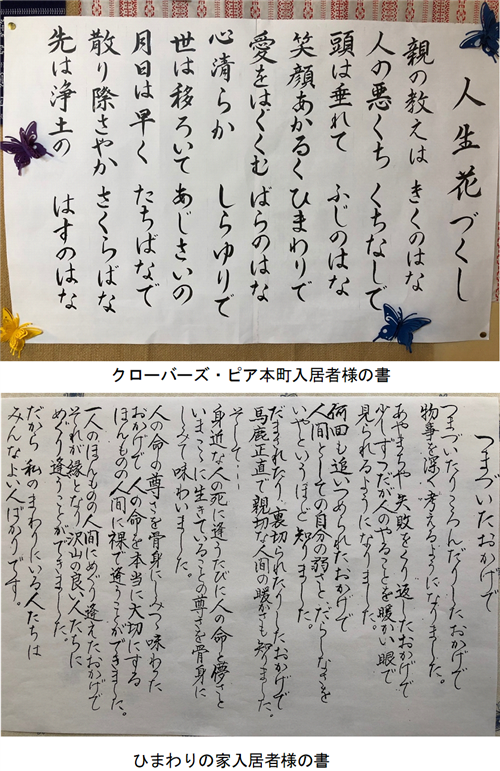 人生花づくし
親の教えは きくのはな
人の悪くち くちなしで
頭は垂れて ふじのはな
笑顔あかるく ひまわりで
愛をはぐくむ ばらのはな
心清らか しらゆりで
世は移ろいて あじさいの
月日は早く たちばなで
散り際さやか さくらばな
先は浄土の はすのはな
クローバーズ・ピア本町入居者様の書
つまづいたおかげで
つまづいたりころんだりしたおかげで
物事を深く考えるようになりました。
あやまちや失敗をくり返したおかげで
少しずつだが人のやることを暖かい眼で
見られるようになりました。
何回も追いつめられたおかげで
人間としての自分の弱さと だらしなさを
いやというほど知りました。
だまされたり 裏切られたりしたおかげで
馬鹿正直で 親切な人間の暖かさも知りました。
そして…
身近な人の死に逢うたびに 人の命の儚さと
いまここに生きていることの尊さを骨身に
しみて味わいました。
人の命の尊さを骨身にしみて味わった
おかげで 人の命を本当に大切にする
ほんものの人間に裸で逢うことができました。
一人のほんものの人間にめぐり逢えたおかげで
それが縁となり 沢山の良い人たちに
めぐり逢うことができました。
だから 私のまわりにいる人たちは
みんなよい人ばかりです。
ひまわりの家入居者様の書